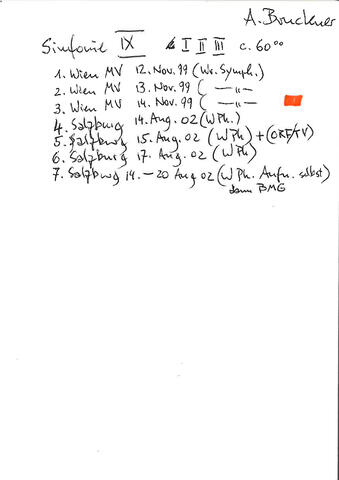 A. Bruckner
Sinfonie IX I II III c. 60°°
1. Wien MV 12. Nov. 99 (Wr. Symph.)
2. Wien MV 13. Nov. 99 ( —〃—
3. Wien MV 14. Nov. 99 ( —〃—
4. Salzburg 14. Aug. 02 (WPh.)
5. Salzburg 15. Aug. 02 (WPh) + (ORF/TV)
6. Salzburg 17. Aug. 02 (WPh)
7. Salzburg 14. — 20 Aug 02 (WPh. Aufn. selbst)
dann BMG